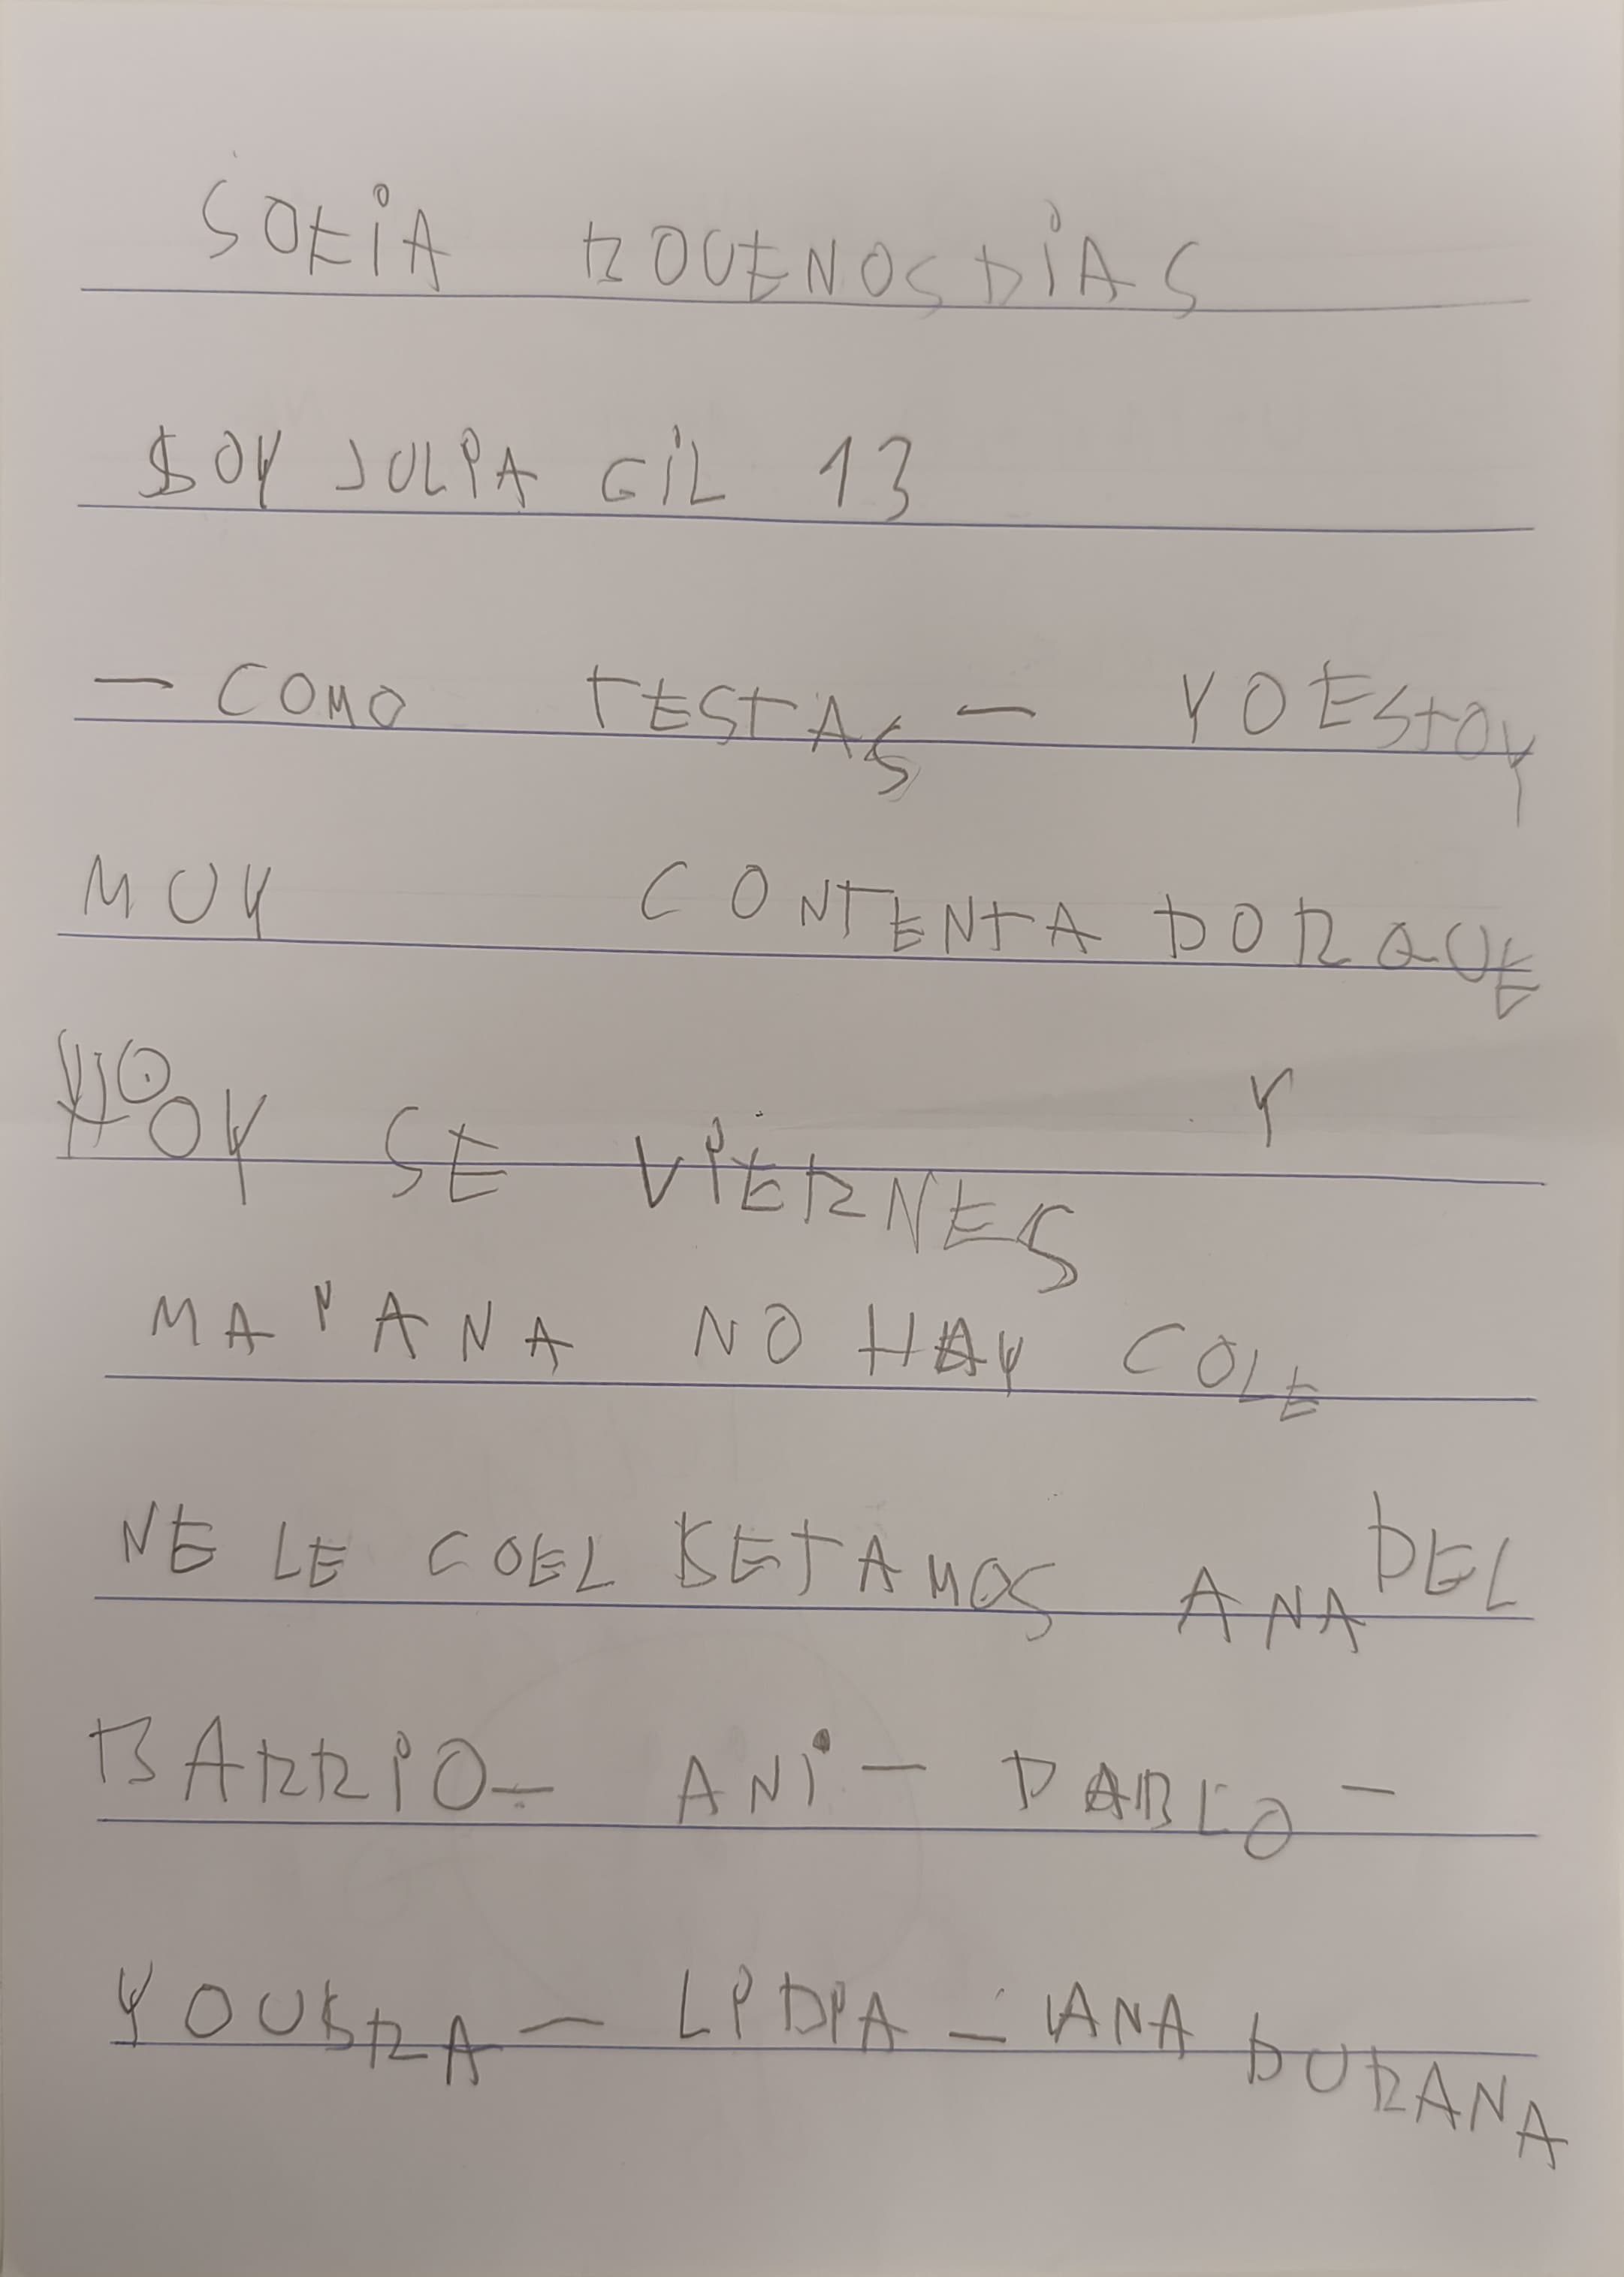 SOFIA BOUENOS DIAS
SOY JULIA GIL 13
— COMO TESTAS — YO ESTOY
MUY CONTENTA PORQUE
HOY SE VIERNES Y
MAÑANA NO HAY COLE
NE LE COEL SETAMOS ANA DEL
BARRIO — ANI — PABLO —
YOUSRA — LIDIA — ANA DURANA